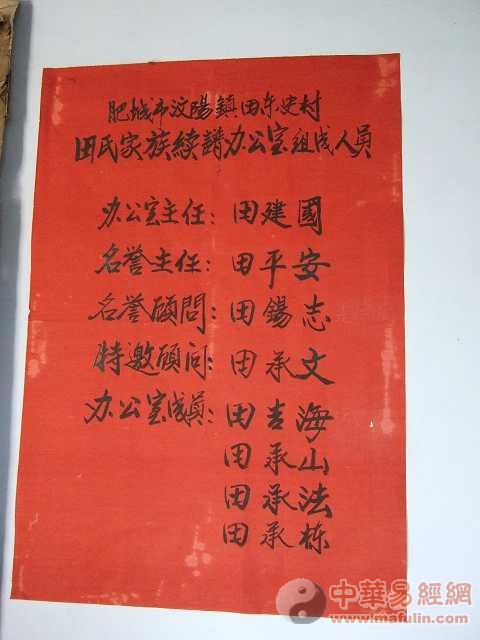 肥城市汶陽鎮田东史村
田氏家族续譜办公室组成人员
办公室主任：田建國
名誉主任：田平安
名誉顾問：田錫志
特邀顾问：田承文
办公室成員：田吉海
田承山
田承法
田承栋
中華易經網
www.mafulin.com